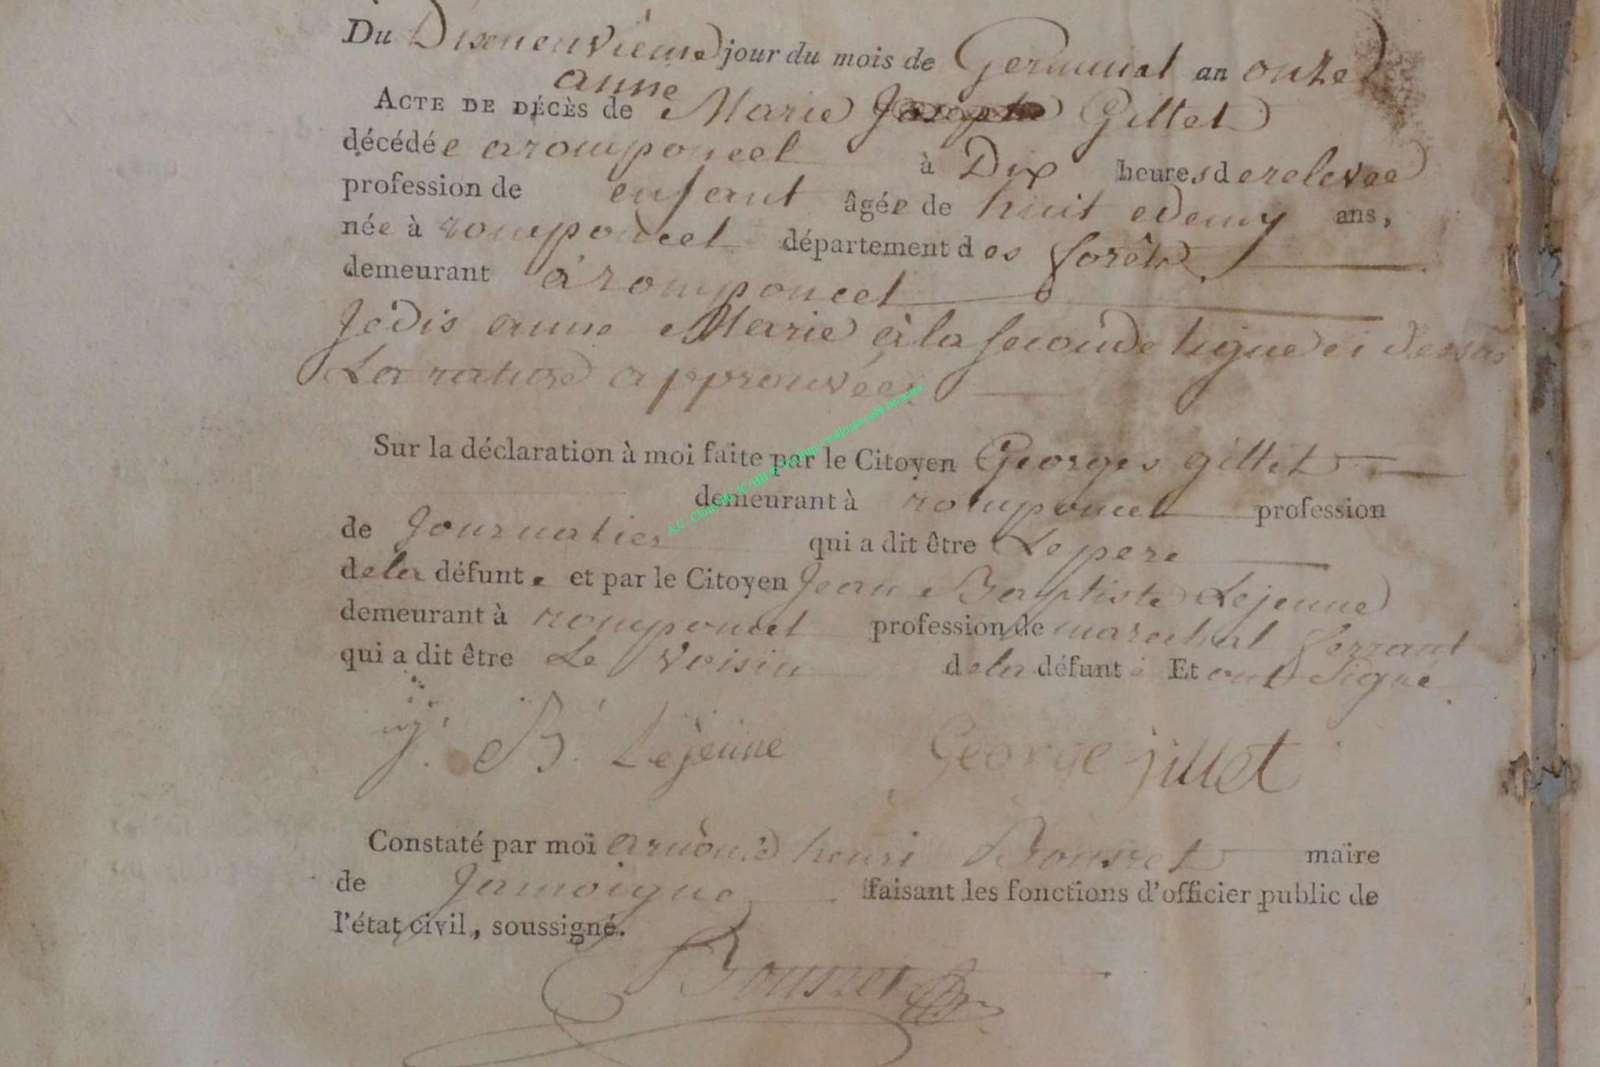 Du Diseneuvieme jour du mois de Germinal an onze
anne
ACTE DE DÉCÈS de Marie Joseph Gillet
décédée a romponcel à Dix heures de relevee
profession de enfant âgée de huit edemy ans,
née à romponcel département des forêts
demeurant à romponcel
Je dis anne Marie à la seconde ligne ci dessus
La rature approuvée
Sur la déclaration à moi faite par le Citoyen Georges gillet
demeurant à romponcel profession
de Journalier qui a dit être Le pere
de la défunte et par le Citoyen Jean Baptiste Lejeune
demeurant à romponcel profession de marechal ferrant
qui a dit être Le voisin de la défunte Et ont Signe
J. B. Lejeune George jillet
Constaté par moi arnould henri Bousret maire
de Jamoigne faisant les fonctions d'officier public de
l'état civil, soussigné.
Bousret